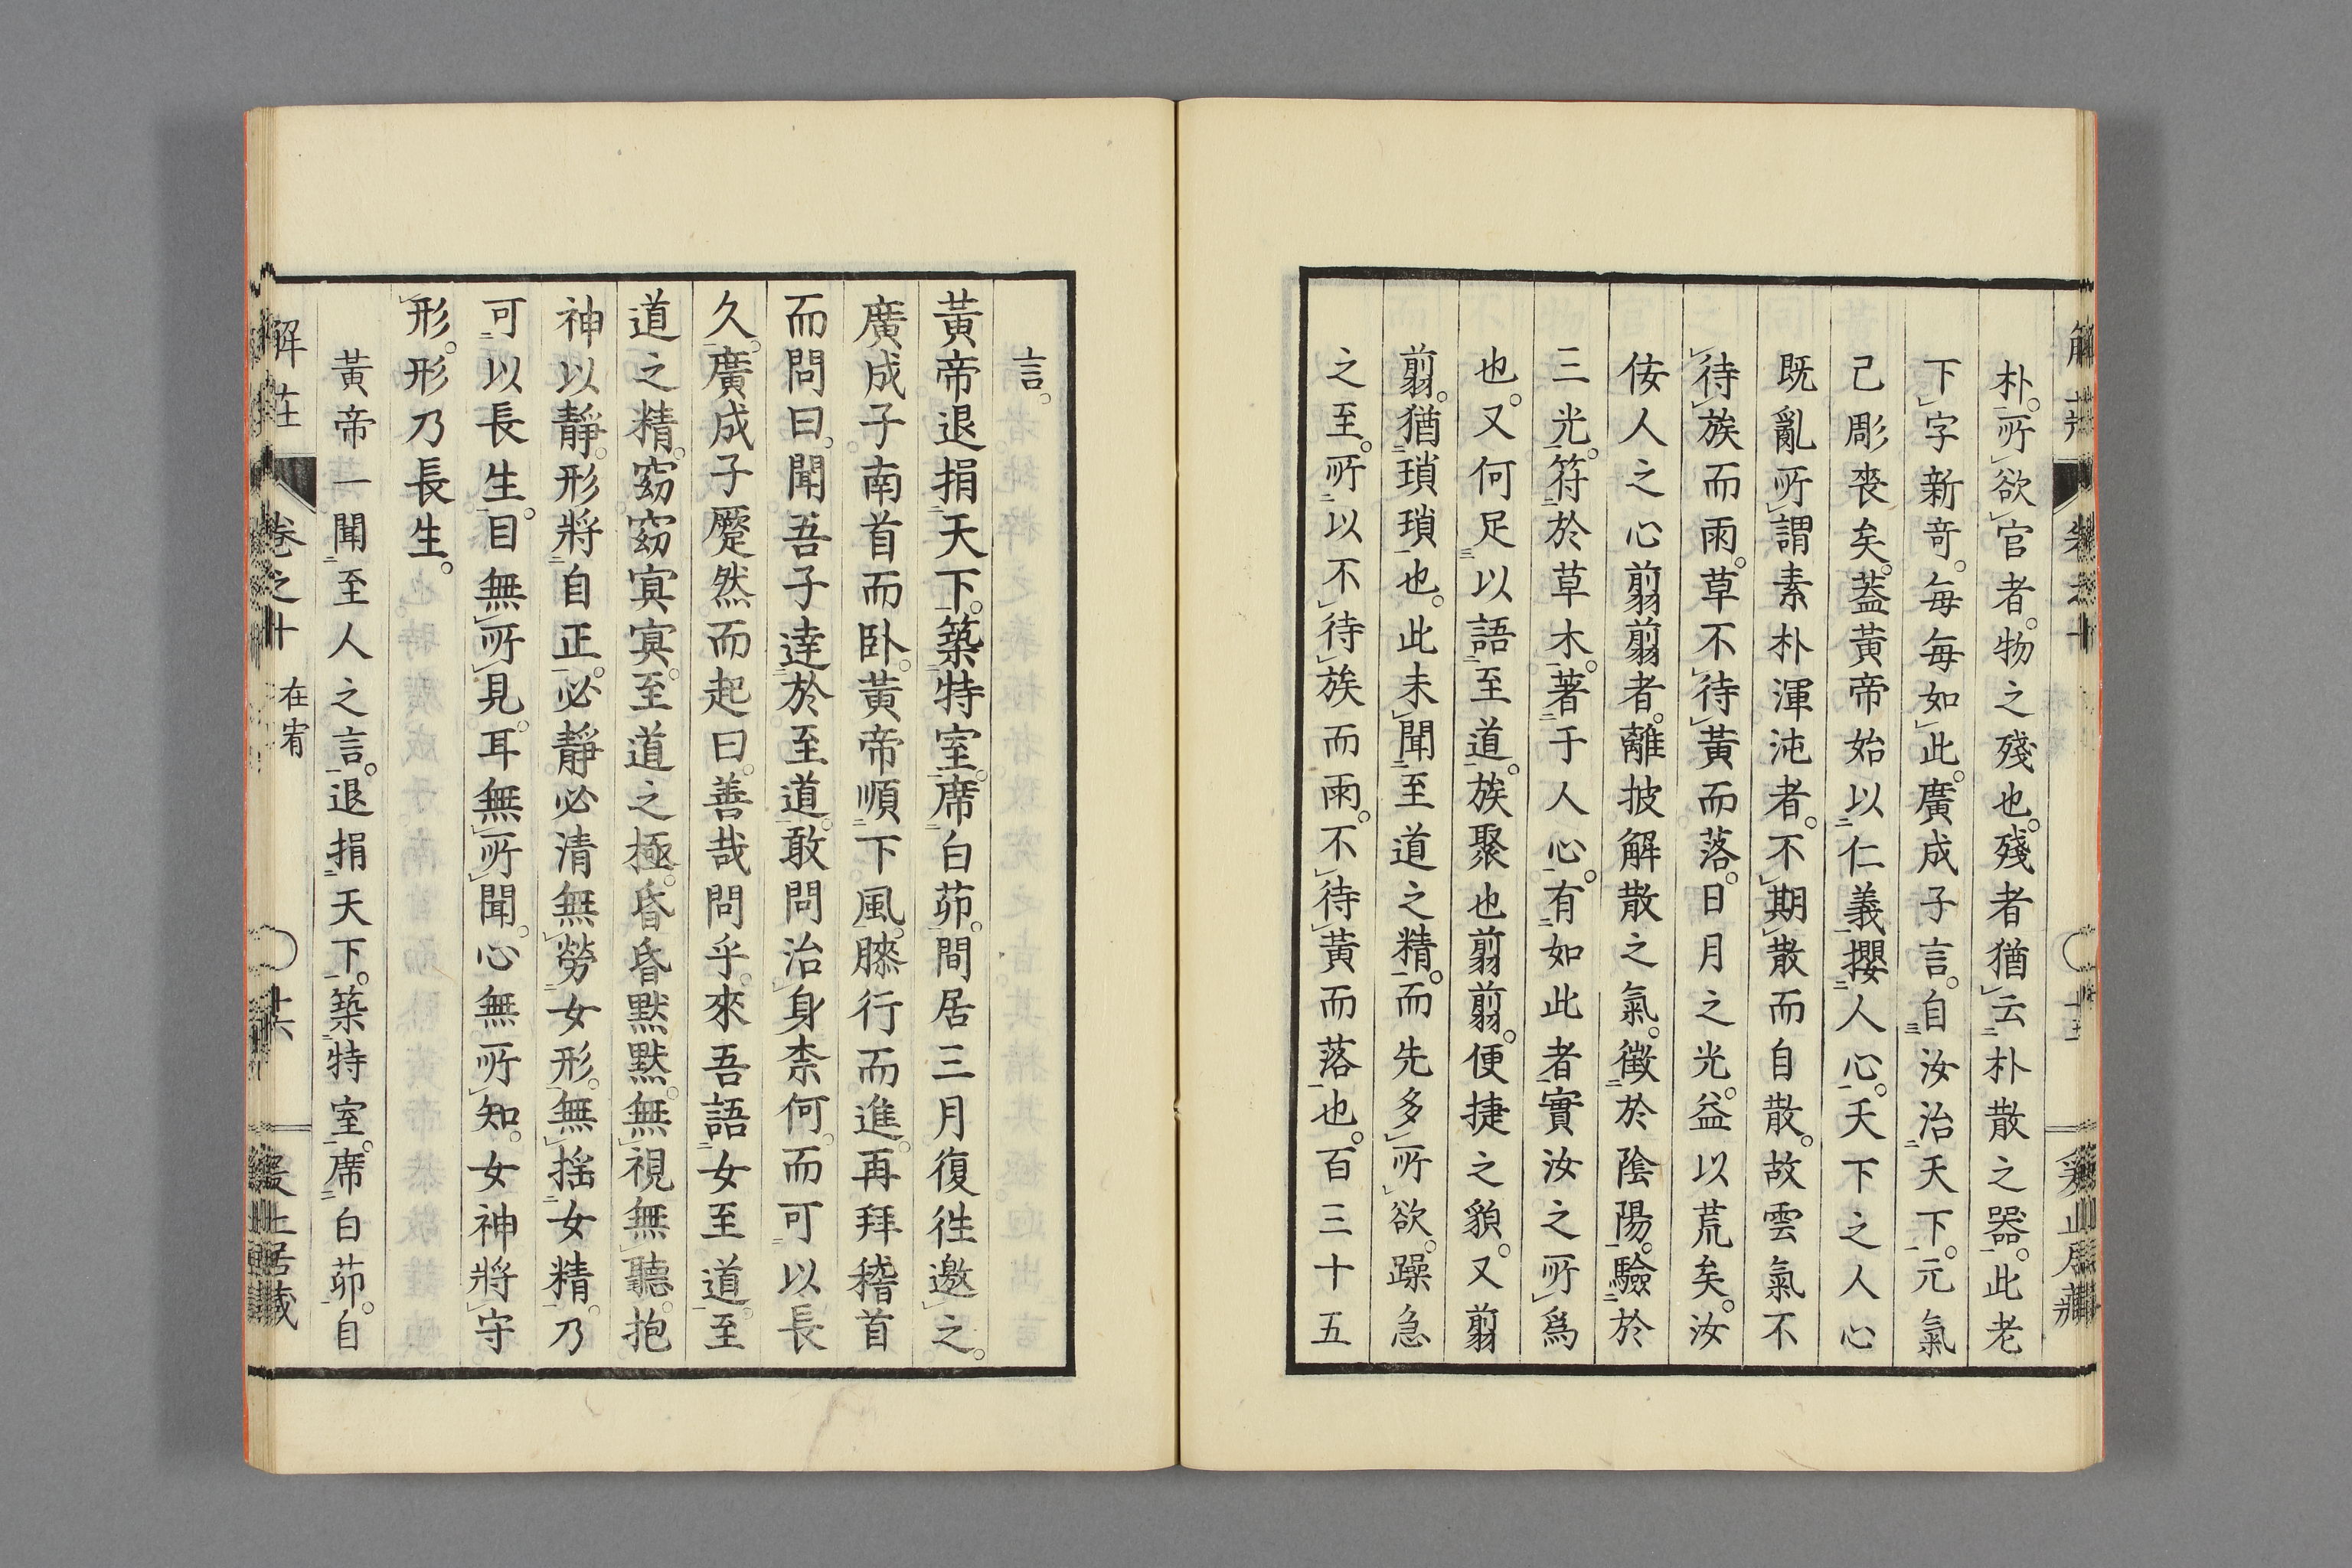 朴。所欲官者。物之殘也。殘者猶云朴散之器。此老
下字新奇。每每如此。廣成子言。自汝治天下。元氣
己彫喪矣。蓋黃帝始以仁義攖人心。天下之人心
既亂所謂素朴渾沌者。不期散而自散。故雲氣不
待族而雨。草不待黃而落。日月之光。益以荒矣。汝
佞人之心翦翦者。離披解散之氣。徵於陰陽。驗於
三光。符於草木。著于人心。有如此者實汝之所爲
也。又何足以語至道。族聚也翦翦。便捷之貌。又翦
翦。猶瑣瑣也。此未聞至道之精。而先多所欲。躁急
之至。所以不待族而雨。不待黃而落也。百三十五
言。
黃帝退捐天下。築特室。席白茆。間居三月復徃邀之。
廣成子南首而卧。黃帝順下風。膝行而進。再拜稽首
而問曰。聞吾子達於至道。敢問治身柰何。而可以長
久。廣成子蹷然而起曰。善哉問乎。來吾語女至道。至
道之精。窈窈冥冥。至道之極。昏昏默默。無視無聽。抱
神以靜。形將自正。必靜必清無勞女形。無搖女精。乃
可以長生。目無所見。耳無所聞。心無所知。女神將守
形。形乃長生。
黃帝一聞至人之言。退捐天下。築特室。席白茆。自
解莊
卷之十
在宥
十六